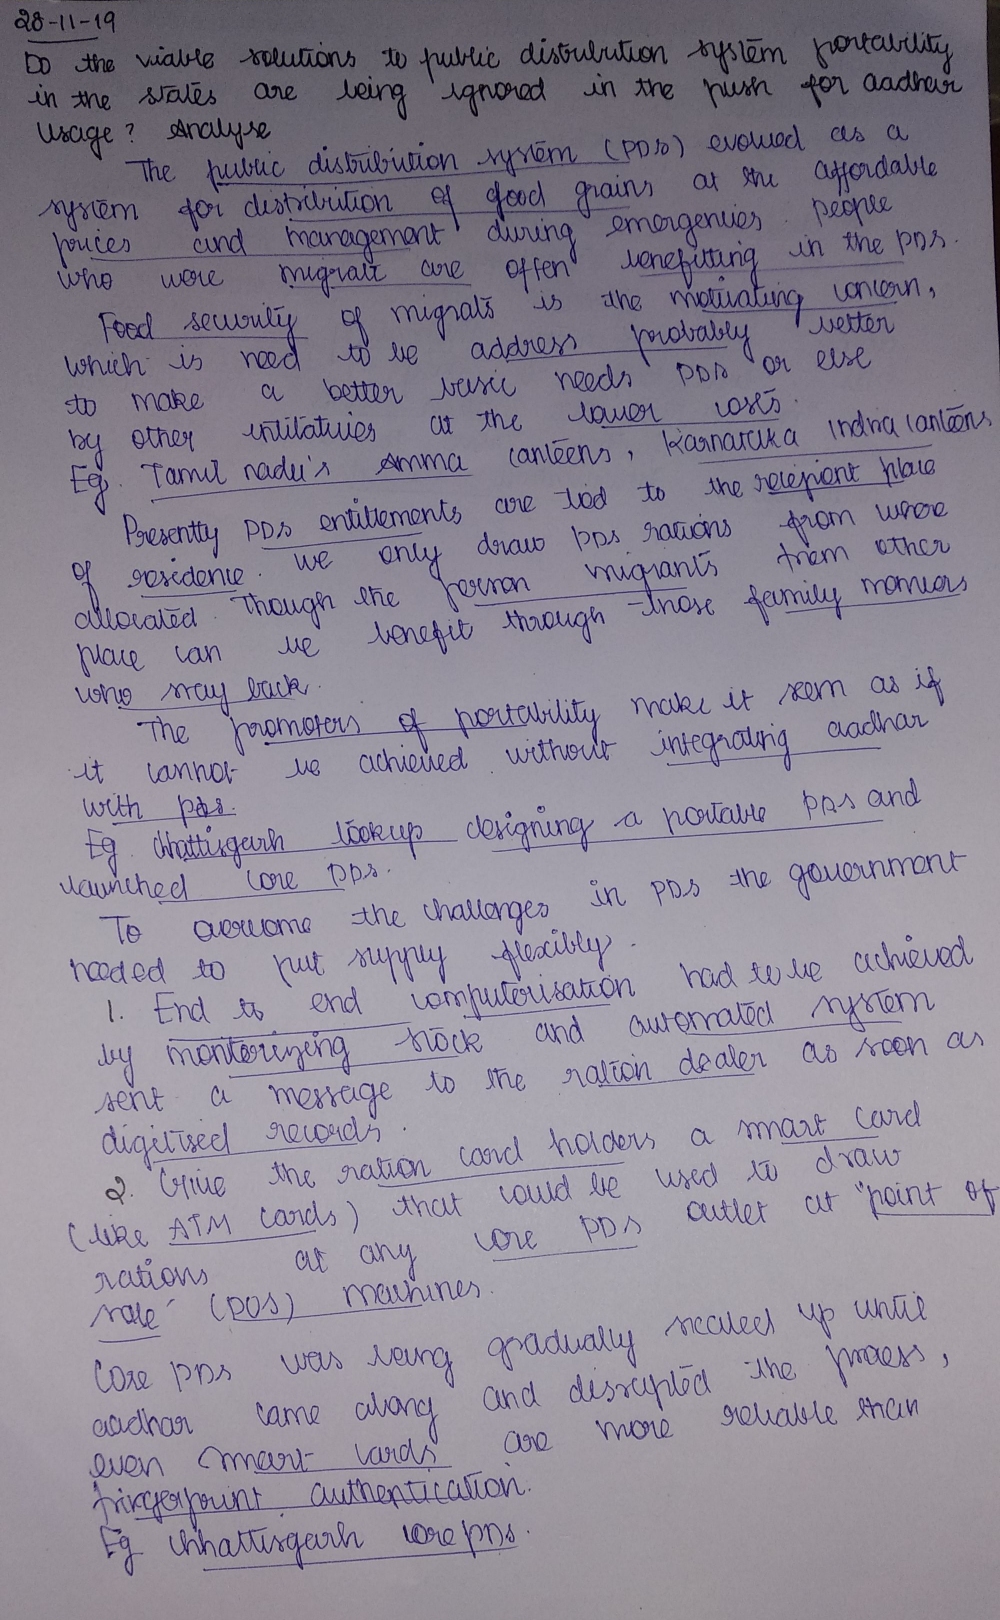 28-11-19
Do the viable solutions to public distribution system portability
in the states are being ignored in the push for aadhar
usage? Analyse
The public distribution system (PDS) evolued as a
system for distribution of food grains at the affordable
prices and management during emergencies. People
who were migrate are offen benefitting in the PDS.
Food security of migrats is the motivating concern,
which is need to be address probably better
to make a better basic needs PDS or else
by other intitatuies at the lower costs.
Eg. Tamil nadu's Amma canteens, Karnataka Indira canteens
Presently PDS entitlements are tied to the recepient place
of residence. We only draw PDS rations from where
allocated. Though the person migrants from other
place can be benefit through those family momeers
who stay back.
The promoters of portability make it seem as if
it cannot be achieved without integrating aadhar
with pds.
Eg. Chattisgarh lookup designing a portable PDS and
launched core PDS.
To overcome the challenges in PDS the government
needed to put supply flexibly.
1. End to end computerisation had to be achieved
by monterizing stock and automated system
sent a message to the ration dealer as soon as
digitised records.
2. Give the ration card holders a smart card
(like ATM cards) that could be used to draw
rations at any core PDS outlet at "point of
sale" (POS) machines.
Core PDS was being gradually scaled up until
aadhar came along and disrupted the process,
even smart cards are more reliable than
fringerprint authentication.
Eg Chhattisgarh core PDS.